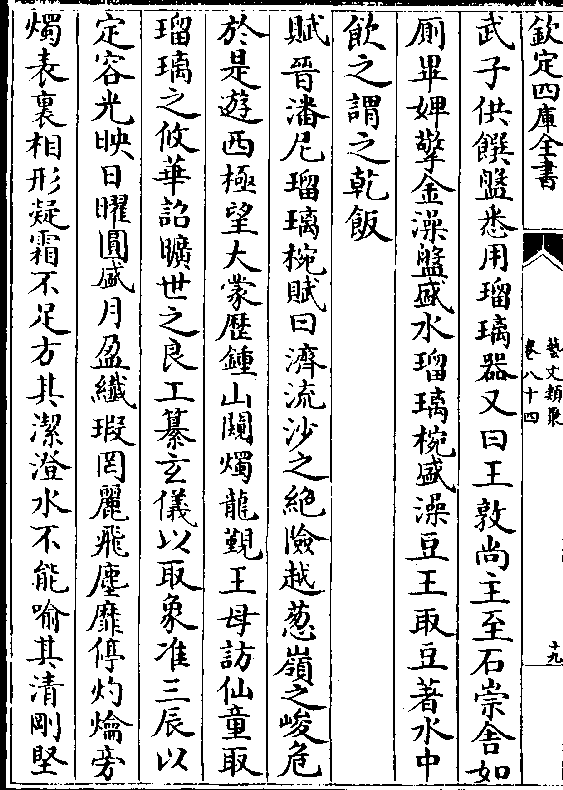 欽定四庫全書
藝文類聚
卷八十四
十九
武子供饌盤悉用瑠璃器又曰王敦尚主至石崇舍如
厠畢婢擎金澡盤盛水瑠璃椀盛澡豆王取豆著水中
飲之謂之乾飯
賦晉潘尼瑠璃椀賦曰濟流沙之絶險越葱嶺之峻危
於是遊西極望大蒙歴鍾山闚燭龍覲王母訪仙童取
瑠璃之攸華詔曠世之良工纂玄儀以取象准三辰以
定容光映日曜圓盛月盈纖瑕罔麗飛塵靡停灼爚旁
燭表裏相形凝霜不足方其潔澄水不能喻其清剛堅